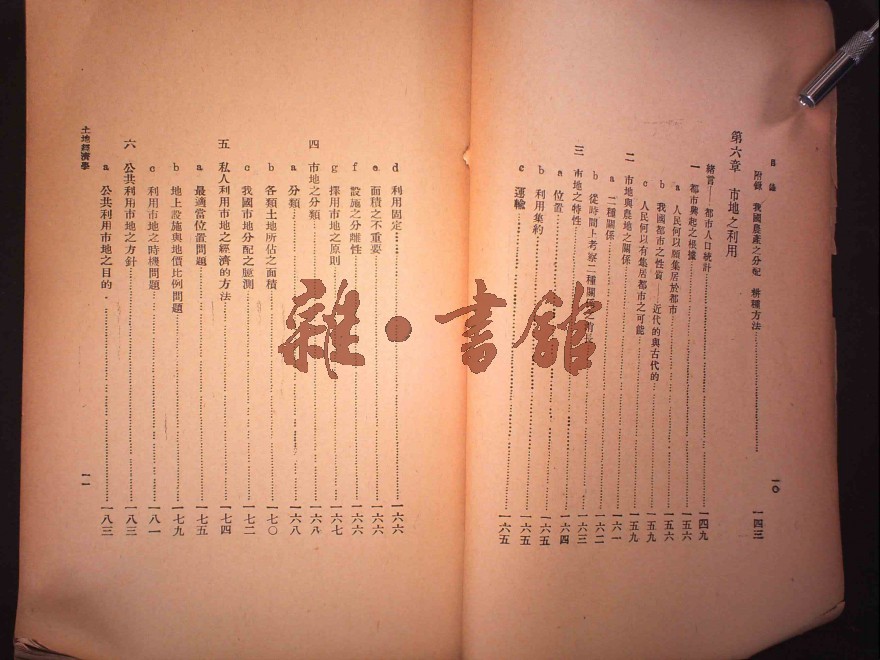 目錄
一〇
附錄 我國農產之分配 耕種方法……一四三
第六章 市地之利用
緒言——都市人口統計……一四九
一 都市興起之根據……一五六
a 人民何以願集居於都市……一五六
b 我國都市之性質——近代的與古代的……一五九
c 人民何以有集居都市之可能……一五九
二 市地與農地之關係……一六一
a 二種關係……一六二
b 從時間上考察二種關係之……一六三
三 市地之特性……一六四
a 位置……一六五
b 利用集約……一六五
c 運輸……一六五
d 利用固定……一六六
e 面積之不重要……一六六
f 設施之分離性……一六六
g 擇用市地之原則……一六七
四 市地之分類……一六八
a 分類……一六八
b 各類土地所佔之面積……一七〇
c 我國市地分配之臆測……一七二
五 私人利用市地之經濟的方法……一七四
a 最適當位置問題……一七五
b 地上設施與地價比例問題……一七九
c 利用市地之時機問題……一八一
六 公共利用市地之方針……一八三
a 公共利用市地之目的……一八三
土地經濟學
一一
雜·書館